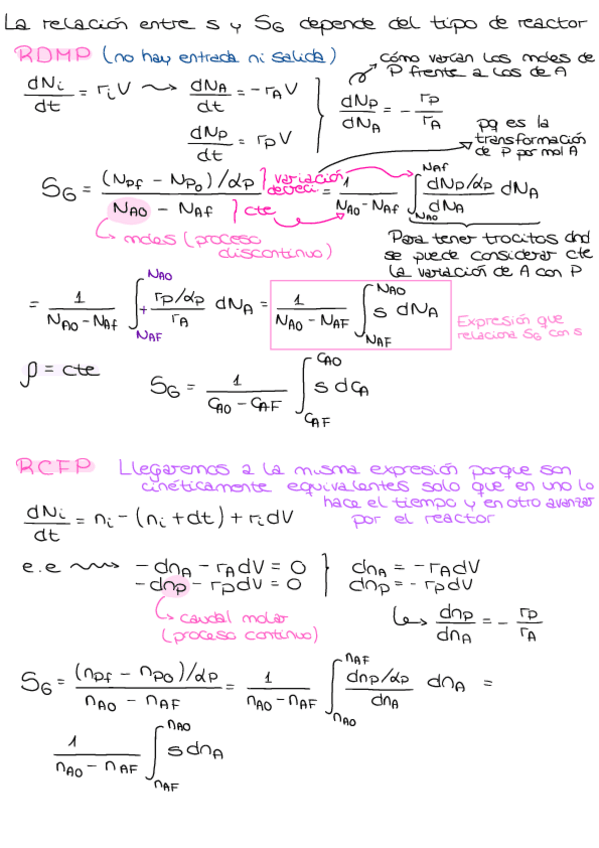 La relación entre s y SG depende del tipo de reactor
RDMP (no hay entrada ni salida)
cómo varían los moles de P frente a los de A
dNi/dt = ri V ⟿ dNA/dt = -rA V
dNP/dt = rP V
dNP/dNA = - rP/rA
pq es la transformación de P por mol A
SG = (NPf - NP0)/αP / (NA0 - NAf) = 1/(NA0 - NAf) ∫NA0^NAf (dNP/αP)/dNA dNA
variación
cte
moles (proceso discontinuo)
Para tener trocitos dnd se puede considerar cte la variación de A con P
= 1/(NA0 - NAf) ∫NAF^NA0 + (rP/αP)/rA dNA = 1/(NA0 - NAF) ∫NAF^NA0 s dNA
Expresión que relaciona SG con s
ρ = cte
SG = 1/(CA0 - CAF) ∫CAF^CA0 s dCA
RCFP Llegaremos a la misma expresión porque son cinéticamente equivalentes solo que en uno lo hace el tiempo y en otro avanzar por el reactor
dNi/dt = ni - (ni + dt) + ri dV
e.e ⟿ - dnA - rA dV = 0
- dnP - rP dV = 0
dnA = - rA dV
dnP = - rP dV
caudal molar (proceso continuo)
↳ dnP/dnA = - rP/rA
SG = (nPf - nP0)/αP / (nA0 - nAF) = 1/(nA0 - nAF) ∫nA0^nAF (dnP/αP)/dnA dnA =
1/(nA0 - nAF) ∫nAF^nA0 s dnA